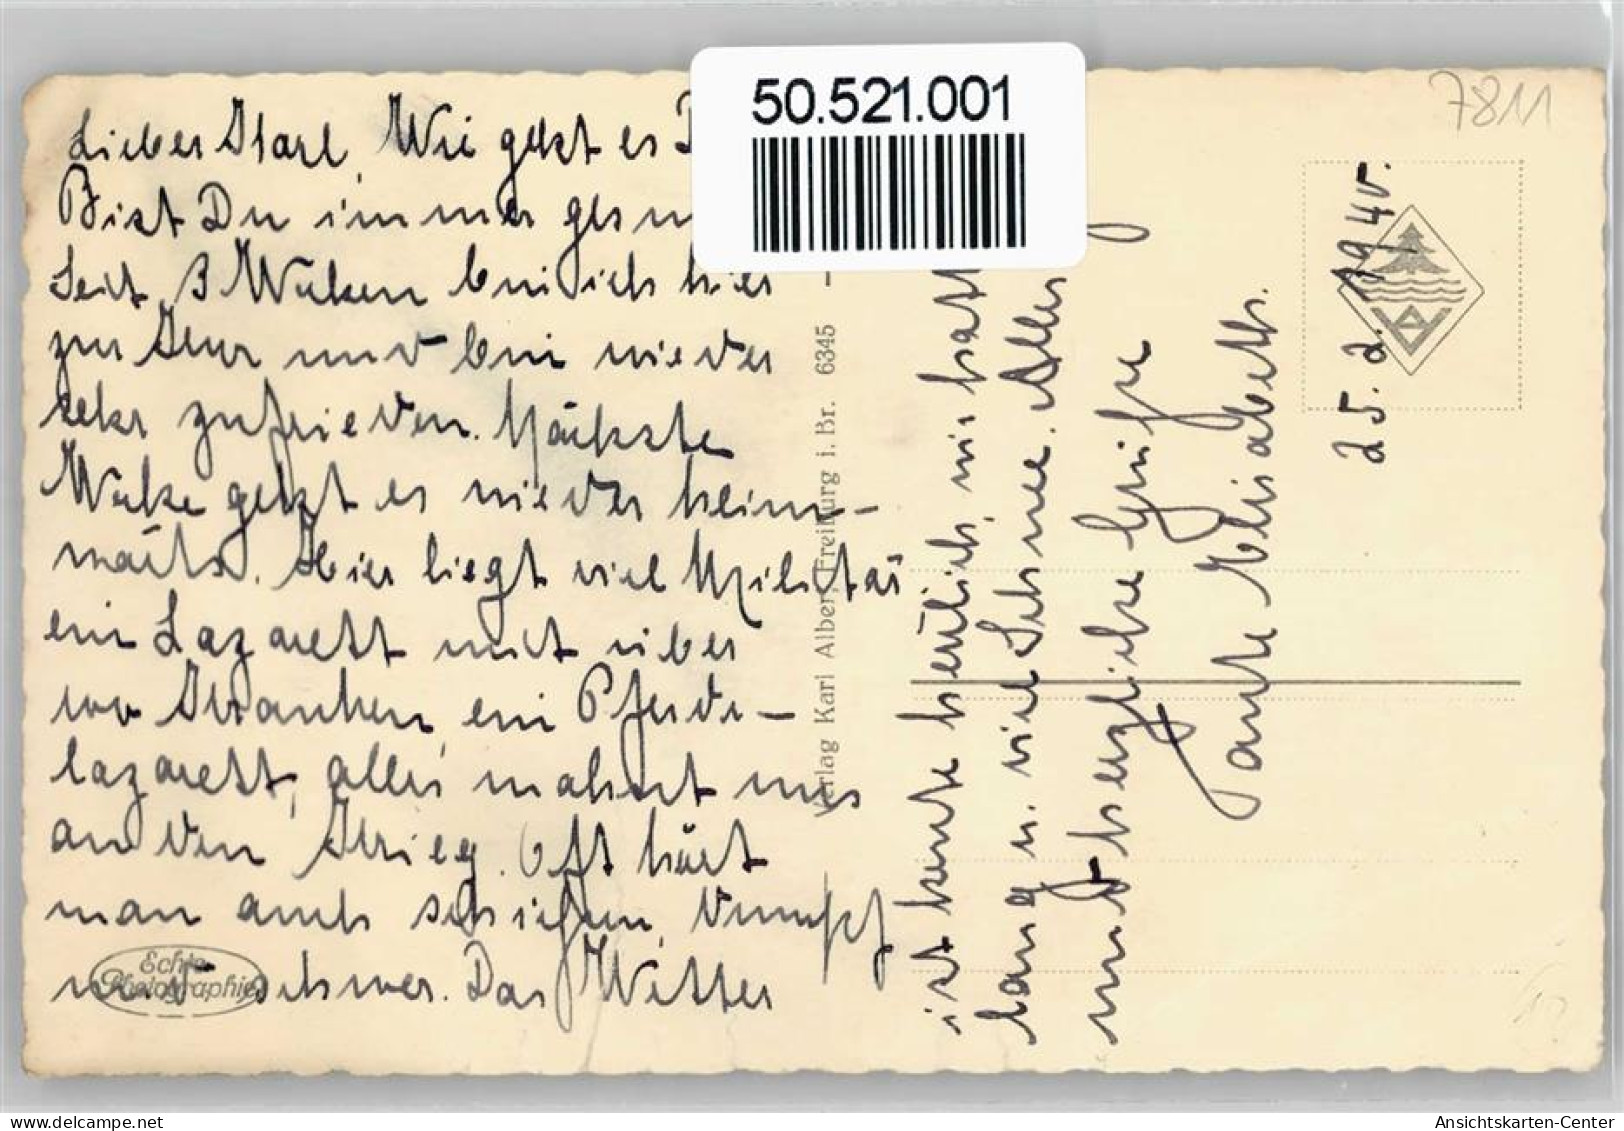 Lieber Karl, Wie geht es D
Bist Du immer gesu
Seit 3 Wochen bin ich hier
zur Kur und bin wieder
sehr zufrieden. Nächste
Woche geht es wieder heim-
wärts. Hier liegt viel Militär
ein Lazarett mit über
100 Kranken, ein Pferde-
lazarett, alles mahnt uns
an den Krieg. Oft hört
man auch schießen, dumpf
und schwer. Das Wetter
ist heute herrlich, wir hatt
lang u. viel Schnee. Alles
und herzliche Grüße
Tante Elisabeth.
25.2.1940.
7811
50.521.001
Verlag Karl Alber, Freiburg i. Br. 6345
Echte
Photographie
Ansichtskarten-Center